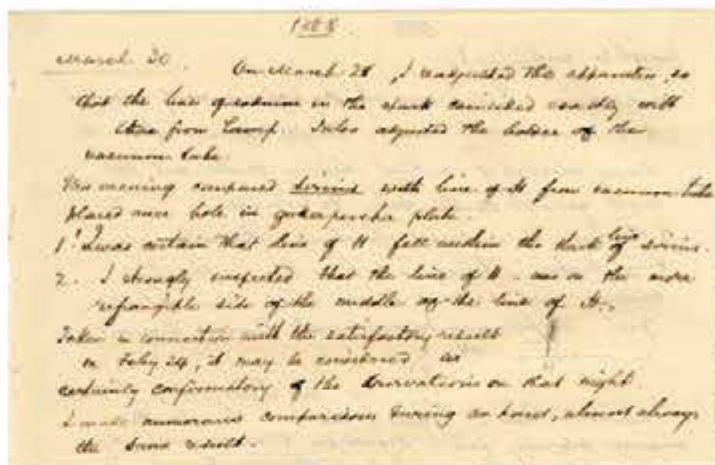 1868
March 30. On March 28, I readjusted the apparatus, so
that the line of sodium in the spark coincided exactly with
that from lamp. I also adjusted the holder of the
vacuum tube.
This evening compared Sirius with line of H from vacuum tube
placed over hole in gutta percha plate.
1. I was certain that line of H fell within the dark line of Sirius.
2. I strongly suspected that the line of H was on the more
refrangible side of the middle of the line of
Taken in connection with the satisfactory result
on Feby 24, it may be considered as
certainly confirmatory of the observations on that night.
I made numerous comparisons during an hour, almost always
the same result.